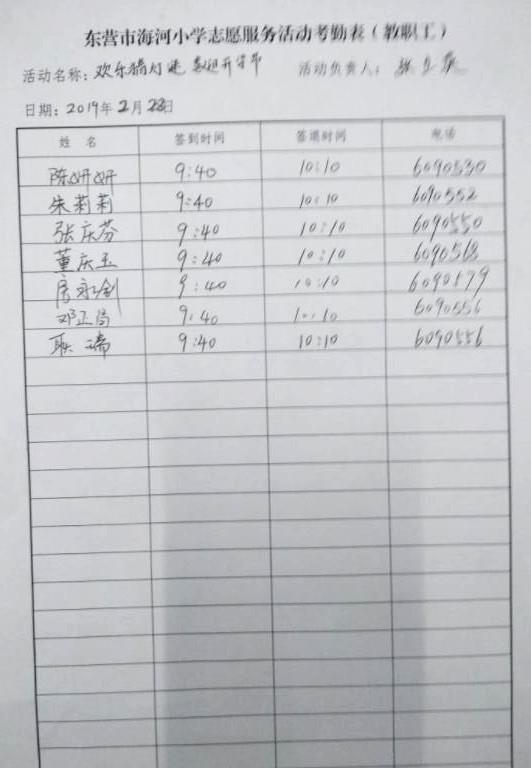 东营市海河小学志愿服务活动考勤表（教职工）
活动名称：欢乐猜灯谜 喜迎开学节 活动负责人：
日期：2019年2月28日
姓名 签到时间 签退时间 电话
陈妍妍 9:40 10:10 6090530
朱莉莉 9:40 10:10 6090552
张庆芬 9:40 10:10 6090550
董庆玉 9:40 10:10 6090568
房永剑 9:40 10:10 6090579
邓正局 9:40 10:10 6090556
耿瑞 9:40 10:10 6090556